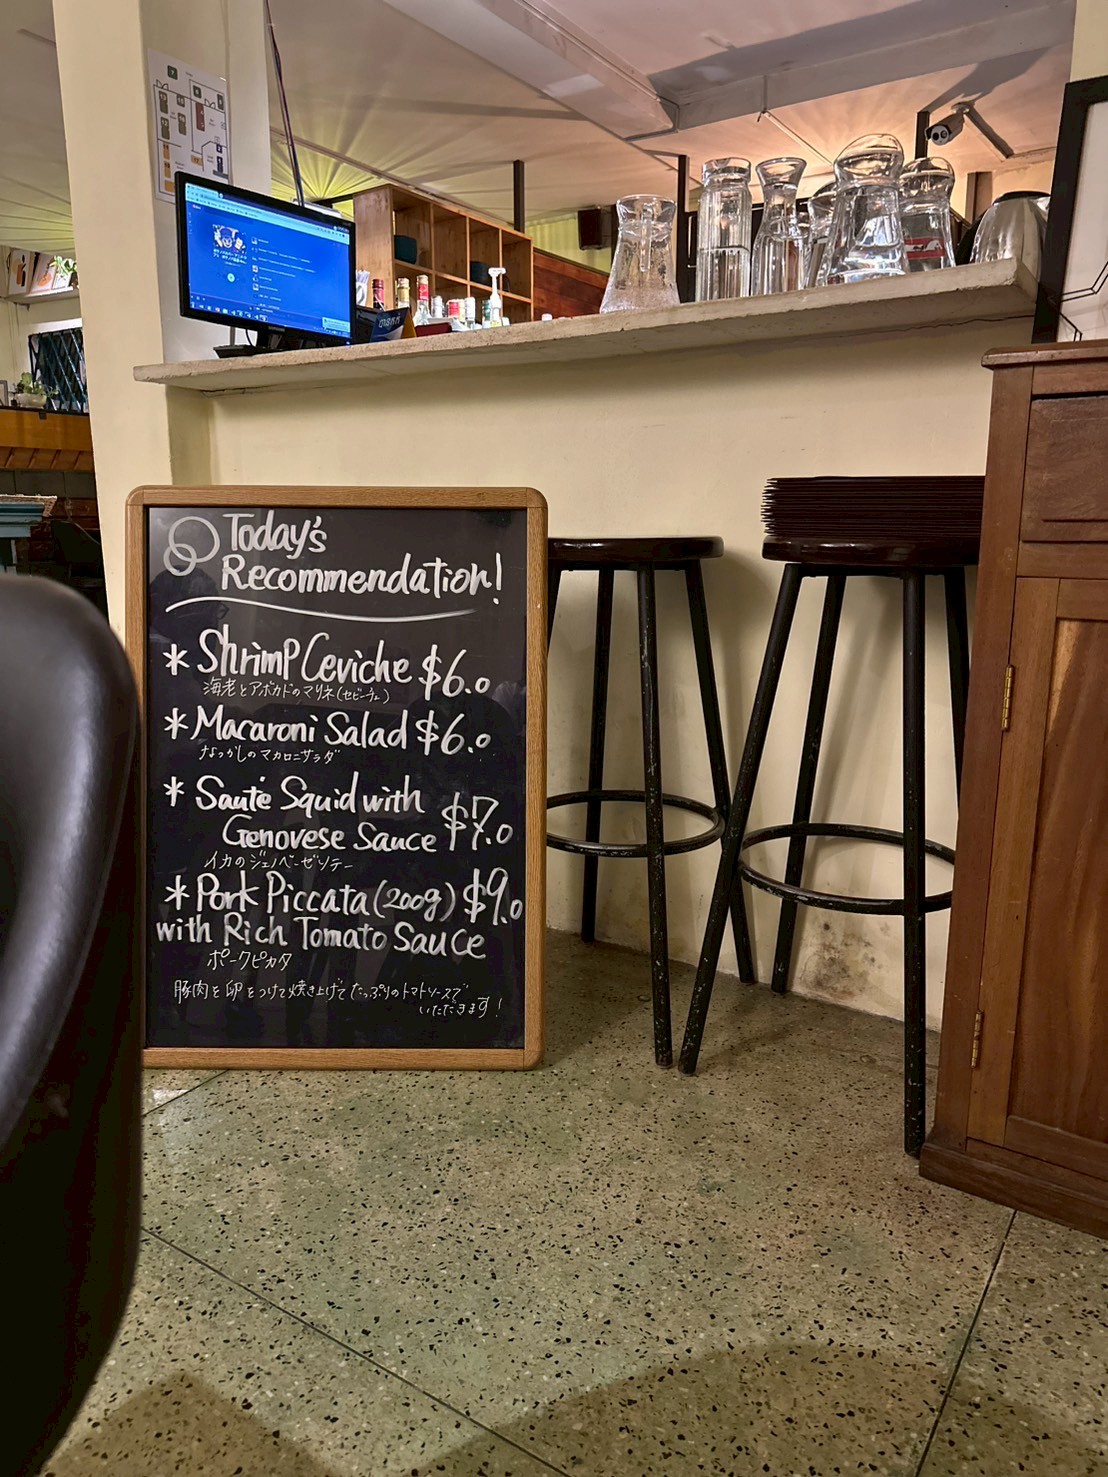 Today's
Recommendation!
* Shrimp Ceviche $6.0
海老とアボカドのマリネ(セビーチェ)
* Macaroni Salad $6.0
なつかしのマカロニサラダ
* Sauté Squid with
Genovese Sauce $7.0
イカのジェノベーゼソテー
* Pork Piccata (200g) $9.0
with Rich Tomato Sauce
ポークピカタ
豚肉を卵をつけて焼き上げてたっぷりのトマトソースで
いただきます!